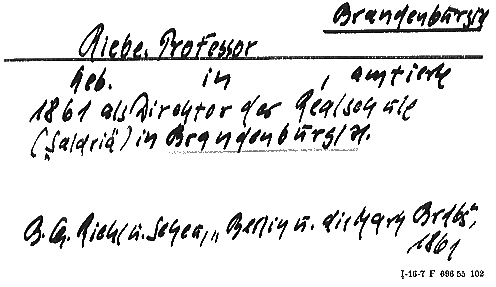 Brandenburg/H
Riebe, Professor
geb. in , amtierte
1861 als Direktor der Realschule
("Saldria") in Brandenburg/H.
B. G. Riehl u. Scheu, "Berlin u. die Mark Brdbg",
1861
I-16-7 F 696 55 102